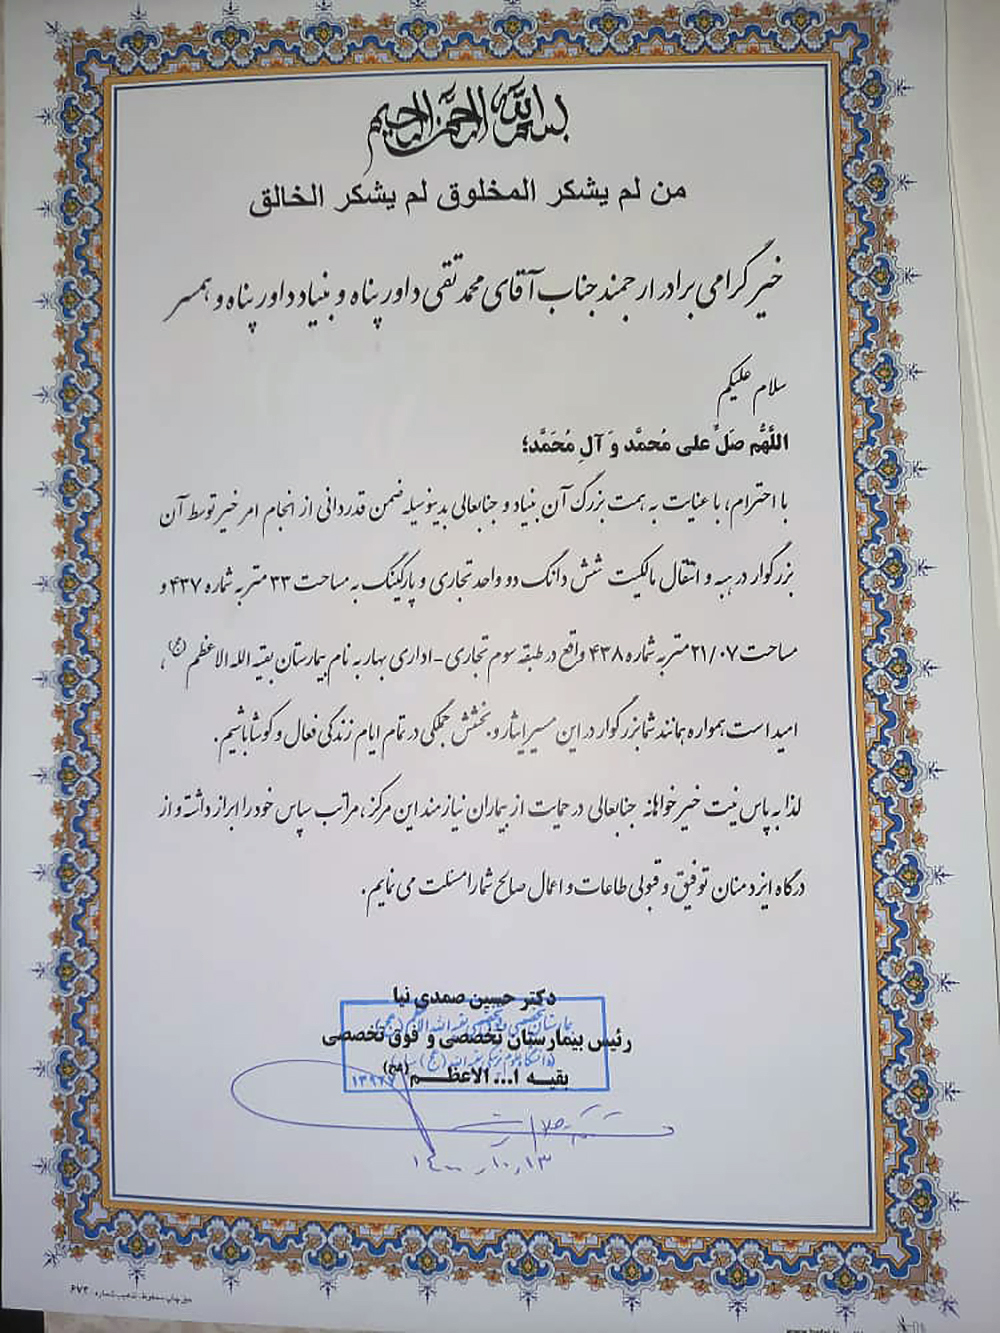 بسم الله الرحمن الرحیم
من لم یشکر المخلوق لم یشکر الخالق
خیر گرامی برادر ارجمند جناب آقای محمد تقی داور پناه و بنیاد داور پناه و همسر
سلام علیکم
اللَّهُم صَلِّ علی مُحمَّد وَ آلِ مُحَمَّد؛
با احترام، با عنایت به همت بزرگ آن بنیاد و جنابعالی بدینوسیله ضمن قدردانی از انجام امر خیر توسط آن
بزرگوار در هبه و انتقال مالکیت شش دانگ دو واحد تجاری و پارکینگ به مساحت ۳۳ متر به شماره ۴۳۷ و
مساحت ۲۱/۰۷ متر به شماره ۴۳۸ واقع در طبقه سوم تجاری-اداری بهار به نام بیمارستان بقیه الله الاعظم (عج)،
امید است همواره همانند شما بزرگوار در این مسیر ایثار و بخشش جملگی در تمام ایام زندگی فعال و کوشا باشیم.
لذا به پاس نیت خیرخواهانه جنابعالی در حمایت از بیماران نیازمند این مرکز، مراتب سپاس خود را ابراز داشته و از
درگاه ایزد منان توفیق و قبولی طاعات و اعمال صالح شما را مسئلت می نمایم.
دکتر حسین صمدی نیا
رئیس بیمارستان تخصصی و فوق تخصصی
بقیه ا... الاعظم (عج)
۱۴۰۰/۱۰/۱۳
۶۷۲